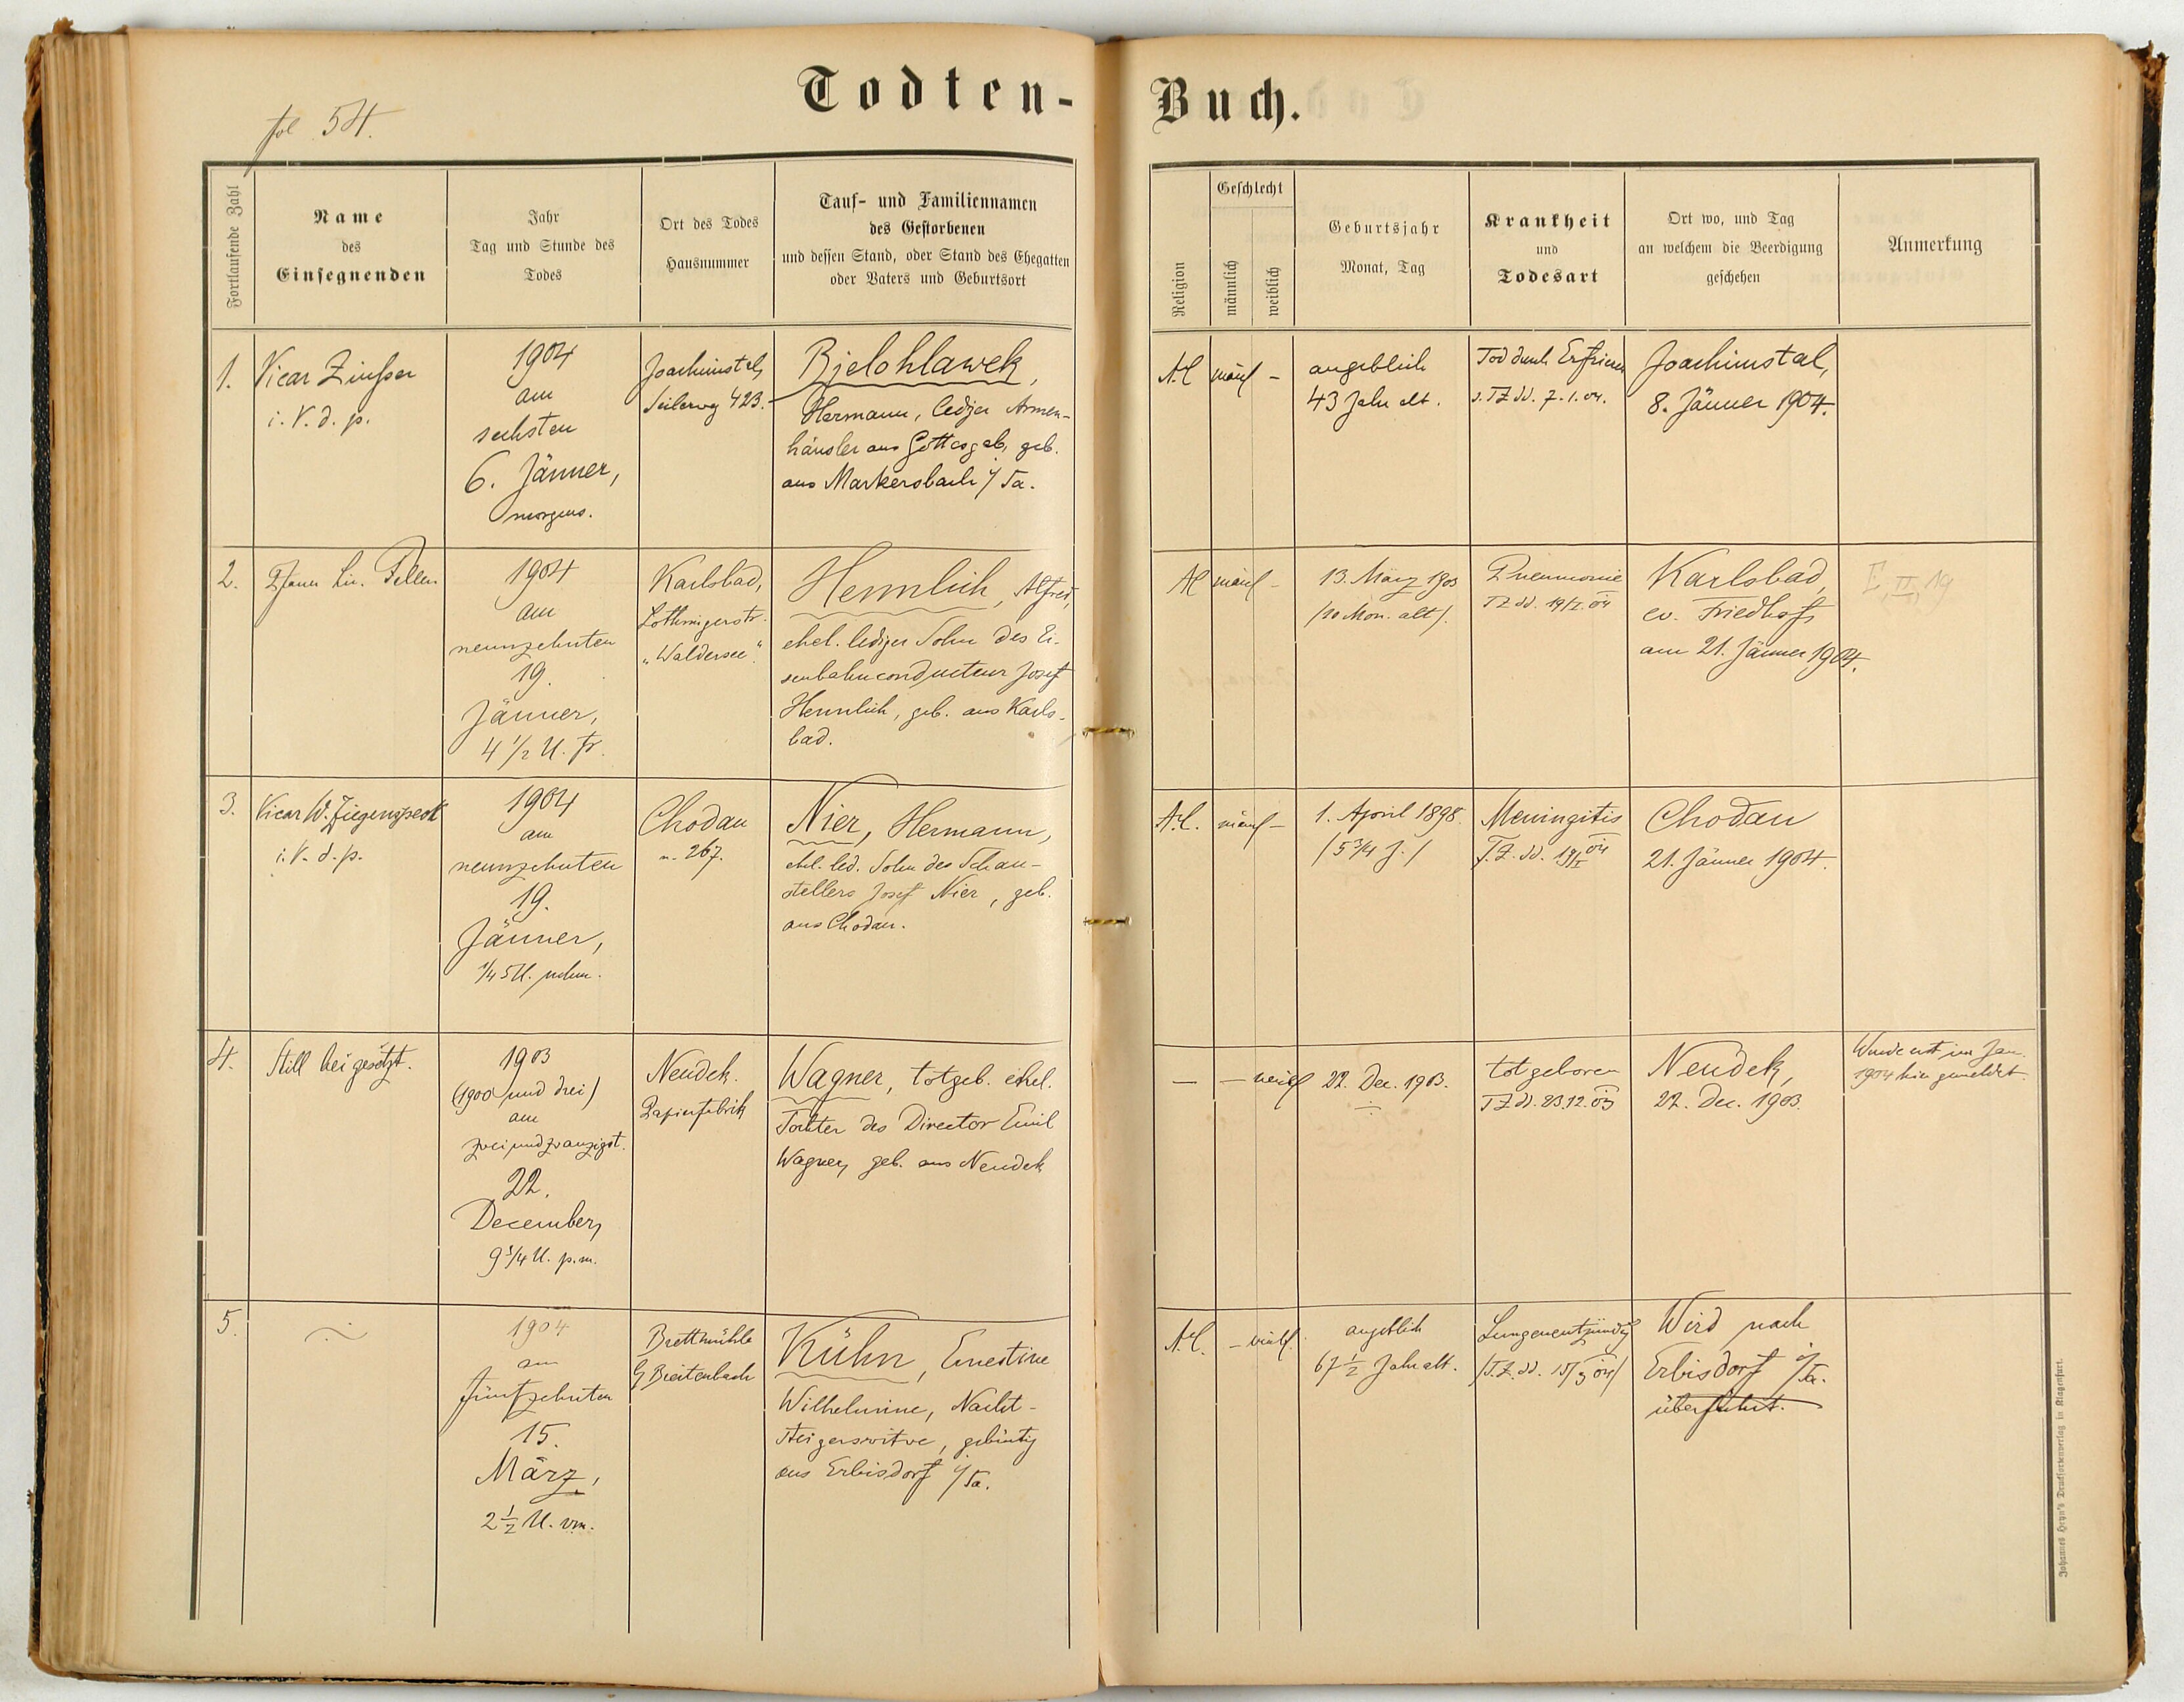 fol. 54.
Todten-Buch.
Fortlaufende Zahl
Name
des
Einsegnenden
Jahr
Tag und Stunde des
Todes
Ort des Todes
Hausnummer
Tauf- und Familiennamen
des Gestorbenen
und dessen Stand, oder Stand des Ehegatten
oder Vaters und Geburtsort
Religion
Geschlecht
männlich
weiblich
Geburtsjahr
Monat, Tag
Krankheit
und
Todesart
Ort wo, und Tag
an welchem die Beerdigung
geschehen
Anmerkung
1.
Vicar
i. V. d. p.
1904
am
sechsten
6. Jänner,
morgens.
Joachimstal,
Seilerweg 423.
Bjelohlawek,
Hermann, lediger Armen-
häusler aus Gottesgab, geb.
aus Markersbach i/Sa.
A.C.
männl –
angeblich
43 Jahre alt.
Tod durch Erfrieren
s. TZ dd. 7.1.04.
Joachimstal,
8. Jänner 1904.
2.
Pfarrer Lic.
1904
am
neunzehnten
19.
Jänner,
4 1/2 U. fr.
Karlsbad,
Lothringerstr.
„Waldersee“.
Hennlich, Alfred,
ehel. lediger Sohn des Ei-
senbahnconducteur Josef
Hennlich, geb. aus Karls-
bad.
AC
männl –
13. März 1903
/10 Mon. alt/.
Pneumonie
TZ dd. 19/I. 04
Karlsbad,
ev. Friedhof,
am 21. Jänner 1904.
E, II, 19
3.
Vicar W. Ziegenspeck
i. V. d. p.
1904
am
neunzehnten
19.
Jänner,
1/4 5 U. nchm.
Chodau
n. 267.
Nier, Hermann,
ehel. led. Sohn des Schau-
stellers Josef Nier, geb.
aus Chodau.
A.C.
männl –
1. April 1898.
/5 3/4 J./
Meningitis
T.Z. dd. 19/I 04
Chodau
21. Jänner 1904.
4.
Still beigesetzt.
1903
(1900 und drei)
am
zweiundzwanzigst.
22.
December,
9 3/4 U. p.m.
Neudek.
Papierfabrik
Wagner, totgeb. ehel.
Tochter des Director Emil
Wagner, geb. aus Neudek
–
– weibl
22. Dec. 1903.
totgeboren
TZ dd. 23.12.03
Neudek,
22. Dec. 1903.
Wurde erst im Jan.
1904 hier gemeldet.
5.
1904
am
fünfzehnten
15.
März,
2 1/2 U. vm.
Brettmühle
Breitenbach
Kühn, Ernestine
Wilhelmine, Nacht-
steigerswitwe, gebürtig
aus Erbisdorf i/Sa.
A.C.
– weibl.
angeblich
67 1/2 Jahr alt.
Lungenentzündg
/T.Z. dd. 15/3 04/
Wird nach
Erbisdorf i/Sa.
überführt.
Johannes Heyn's Drucksortenverlag in Klagenfurt.